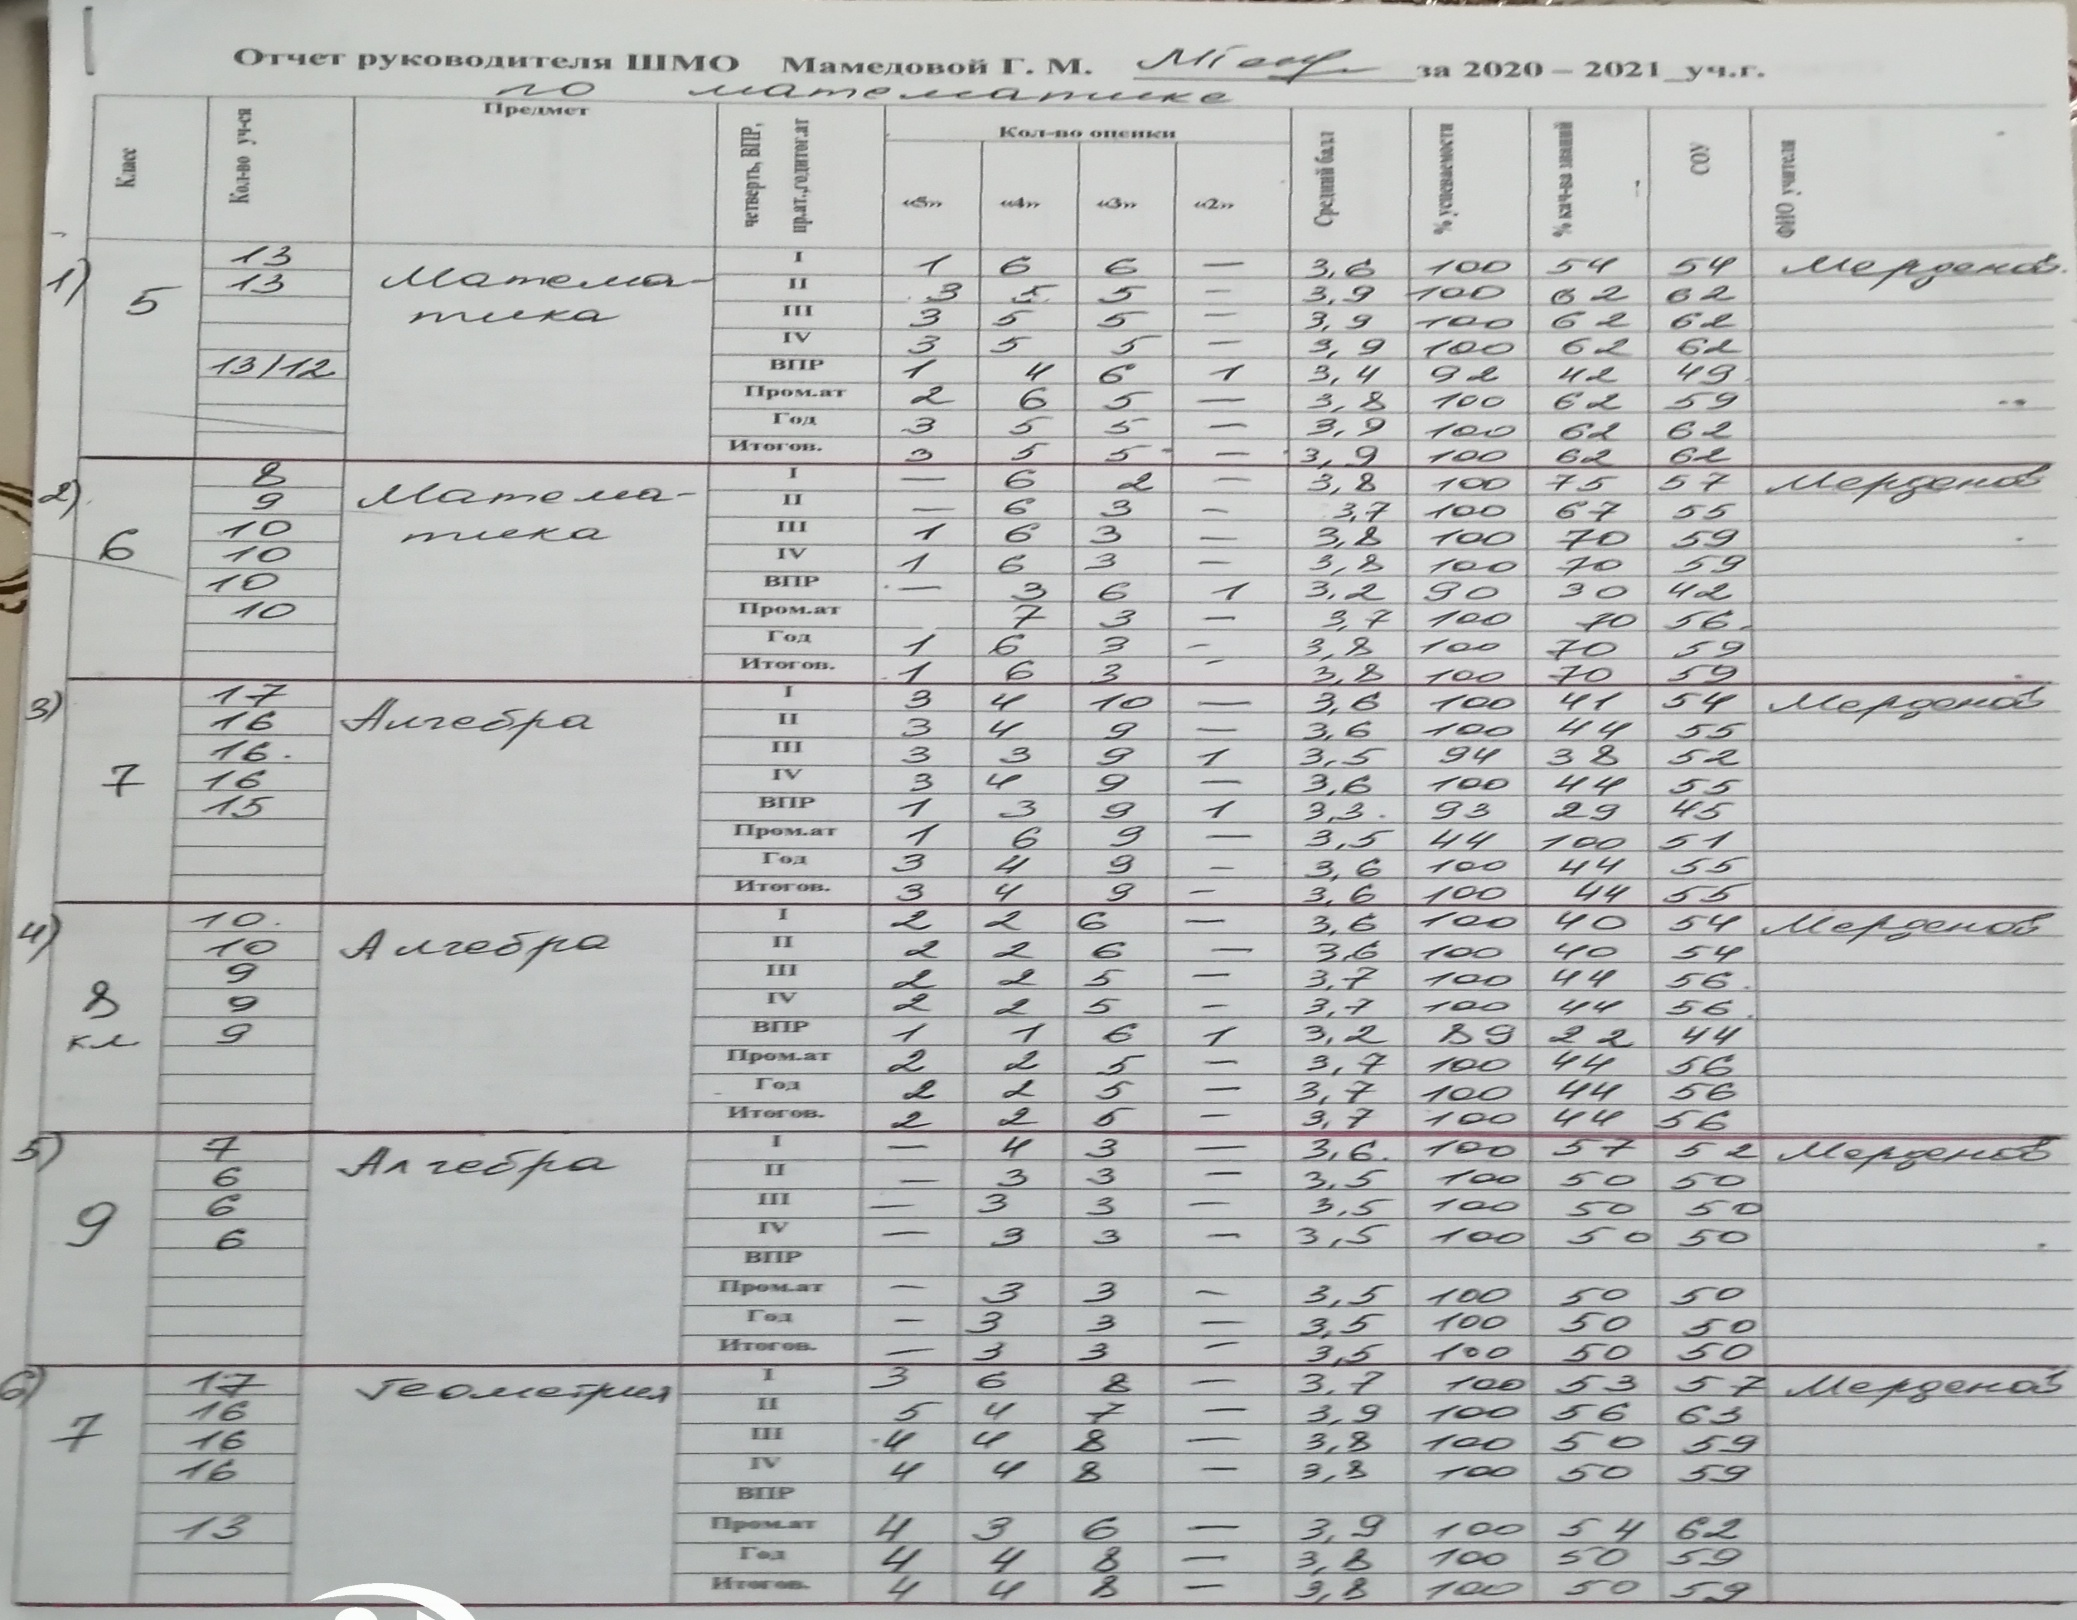 Отчет руководителя ШМО Мамедовой Г. М. за 2020 – 2021 уч.г.
по математике
Класс Кол-во уч-ся Предмет четверть, ВПР, пр.ат.,год,итог.ат Кол-во оценки Средний балл % успеваемости % кач-ва знаний СОУ ФИО учителя
«5» «4» «3» «2»
1) 5 13 Матема- I 1 6 6 — 3,6 100 54 54 Мерденов.
13 тика II 3 5 5 — 3,9 100 62 62
III 3 5 5 — 3,9 100 62 62
IV 3 5 5 — 3,9 100 62 62
13/12 ВПР 1 4 6 1 3,4 92 42 49
Пром.ат 2 6 5 — 3,8 100 62 59
Год 3 5 5 — 3,9 100 62 62
Итогов. 3 5 5 — 3,9 100 62 62
2) 6 8 Матема- I — 6 2 — 3,8 100 75 57 Мерденов
9 тика II — 6 3 — 3,7 100 67 55
10 III 1 6 3 — 3,8 100 70 59
10 IV 1 6 3 — 3,8 100 70 59
10 ВПР — 3 6 1 3,2 90 30 42
10 Пром.ат 7 3 — 3,7 100 70 56.
Год 1 6 3 - 3,8 100 70 59
Итогов. 1 6 3 - 3,8 100 70 59
3) 7 17 Алгебра I 3 4 10 — 3,6 100 41 54 Мерденов
16 II 3 4 9 — 3,6 100 44 55
16. III 3 3 9 1 3,5 94 38 52
16 IV 3 4 9 — 3,6 100 44 55
15 ВПР 1 3 9 1 3,3. 93 29 45
Пром.ат 1 6 9 — 3,5 44 100 51
Год 3 4 9 - 3,6 100 44 55
Итогов. 3 4 9 - 3,6 100 44 55
4) 8 кл 10. Алгебра I 2 2 6 — 3,6 100 40 54 Мерденов
10 II 2 2 6 — 3,6 100 40 54
9 III 2 2 5 — 3,7 100 44 56.
9 IV 2 2 5 - 3,7 100 44 56.
9 ВПР 1 1 6 1 3,2 89 22 44
Пром.ат 2 2 5 — 3,7 100 44 56
Год 2 2 5 — 3,7 100 44 56
Итогов. 2 2 5 — 3,7 100 44 56
5) 9 7 Алгебра I — 4 3 — 3,6. 100 57 52 Мерденов
6 II — 3 3 — 3,5 100 50 50
6 III — 3 3 — 3,5 100 50 50
6 IV — 3 3 — 3,5 100 50 50
ВПР
Пром.ат — 3 3 — 3,5 100 50 50
Год — 3 3 — 3,5 100 50 50
Итогов. — 3 3 — 3,5 100 50 50
6) 7 17 Геометрия I 3 6 8 — 3,7 100 53 57 Мерденов
16 II 5 4 7 — 3,9 100 56 63
16 III 4 4 8 — 3,8 100 50 59
16 IV 4 4 8 — 3,8 100 50 59
ВПР
13 Пром.ат 4 3 6 — 3,9 100 54 62
Год 4 4 8 — 3,8 100 50 59
Итогов. 4 4 8 — 3,8 100 50 59